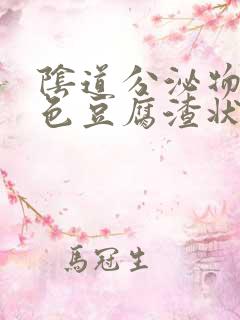 陰道分泌物
色豆腐渣狀
馬冠生